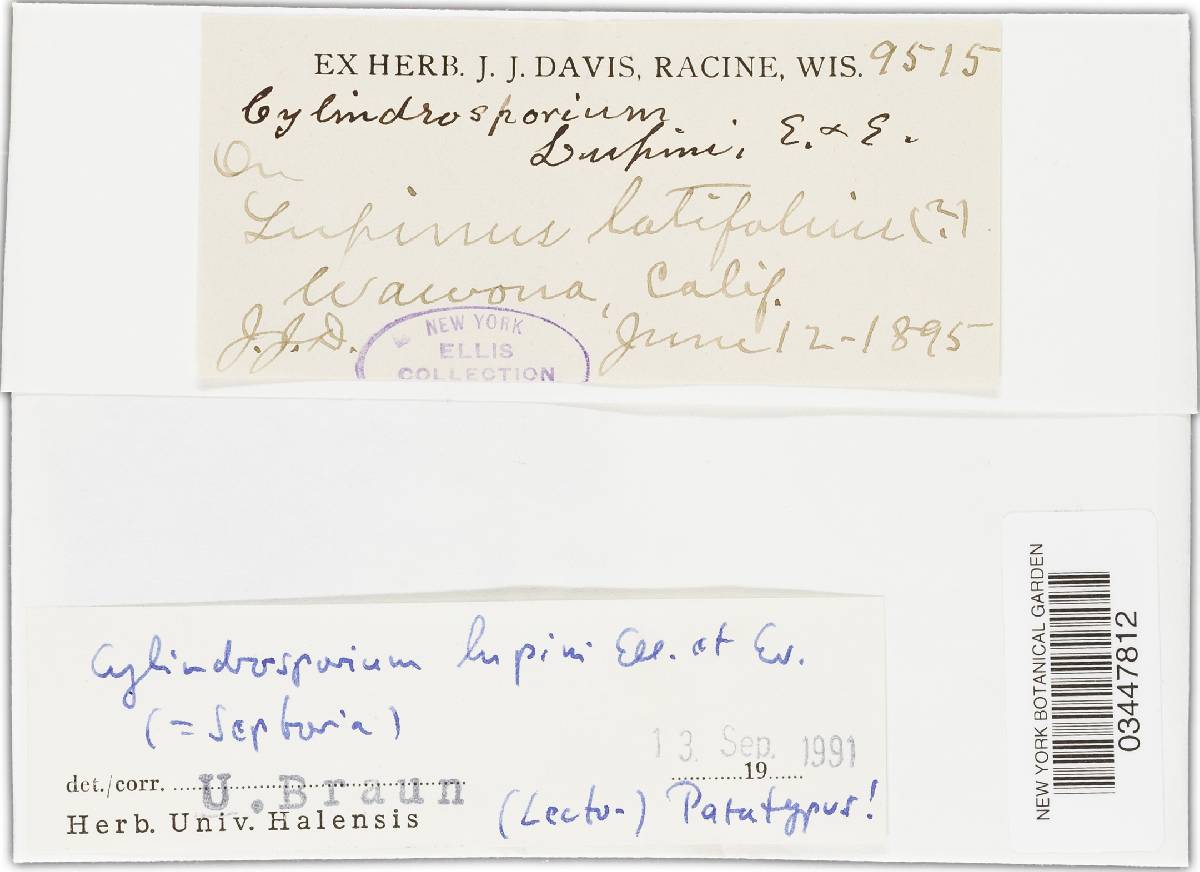 EX HERB. J. J. DAVIS, RACINE, WIS. 9515
Cylindrosporium
Lupini, E. & E.
On
Lupinus latifolius (?)
Wawona, Calif.
J.J.D. June 12-1895
NEW YORK
ELLIS
COLLECTION
NEW YORK BOTANICAL GARDEN
03447812
Cylindrosporium lupini Ell. et Ev.
(= Septoria)
13. Sep. 1991
det./corr. U. Braun 19
Herb. Univ. Halensis
(Lecto-) Paratypus!